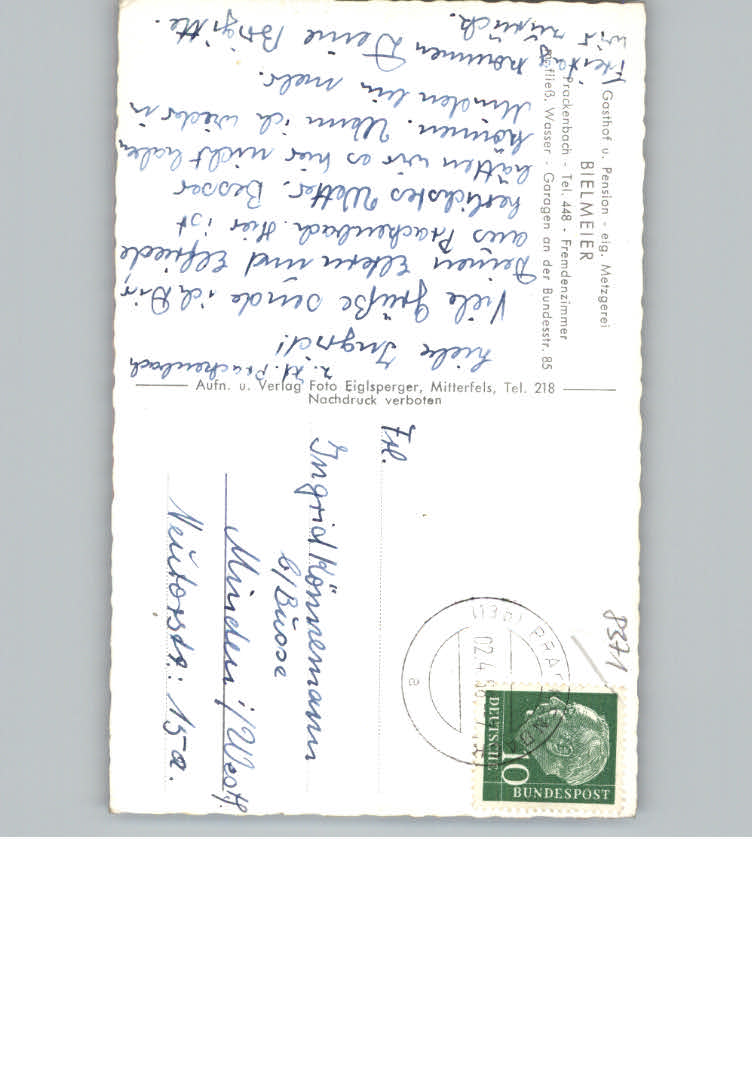 Gasthof u. Pension - eig. Metzgerei
BIELMEIER
Prackenbach - Tel. 448 - Fremdenzimmer
Fließ. Wasser - Garagen an der Bundesstr. 85
z. Zt. Prackenbach
Liebe Ingrid!
Viele Grüße sende ich Dir,
Deinen Eltern und Elfriede
aus Prackenbach. Hier ist
herlichstes Wetter. Besser
hätten wir es hier nicht haben
können. Wenn ich wieder in
Minden bin mehr.
Freitag kommen Deine Brigitte.
wir zurück.
Aufn. u. Verlag Foto Eiglsperger, Mitterfels, Tel. 218
Nachdruck verboten
8371
(13b) PRACKENBACH
02.4.58
a
DEUTSCHE
BUNDESPOST
10
Frl.
Ingrid Könnemann
b/Busse
Minden i/Westf.
Neutorstr: 15a.